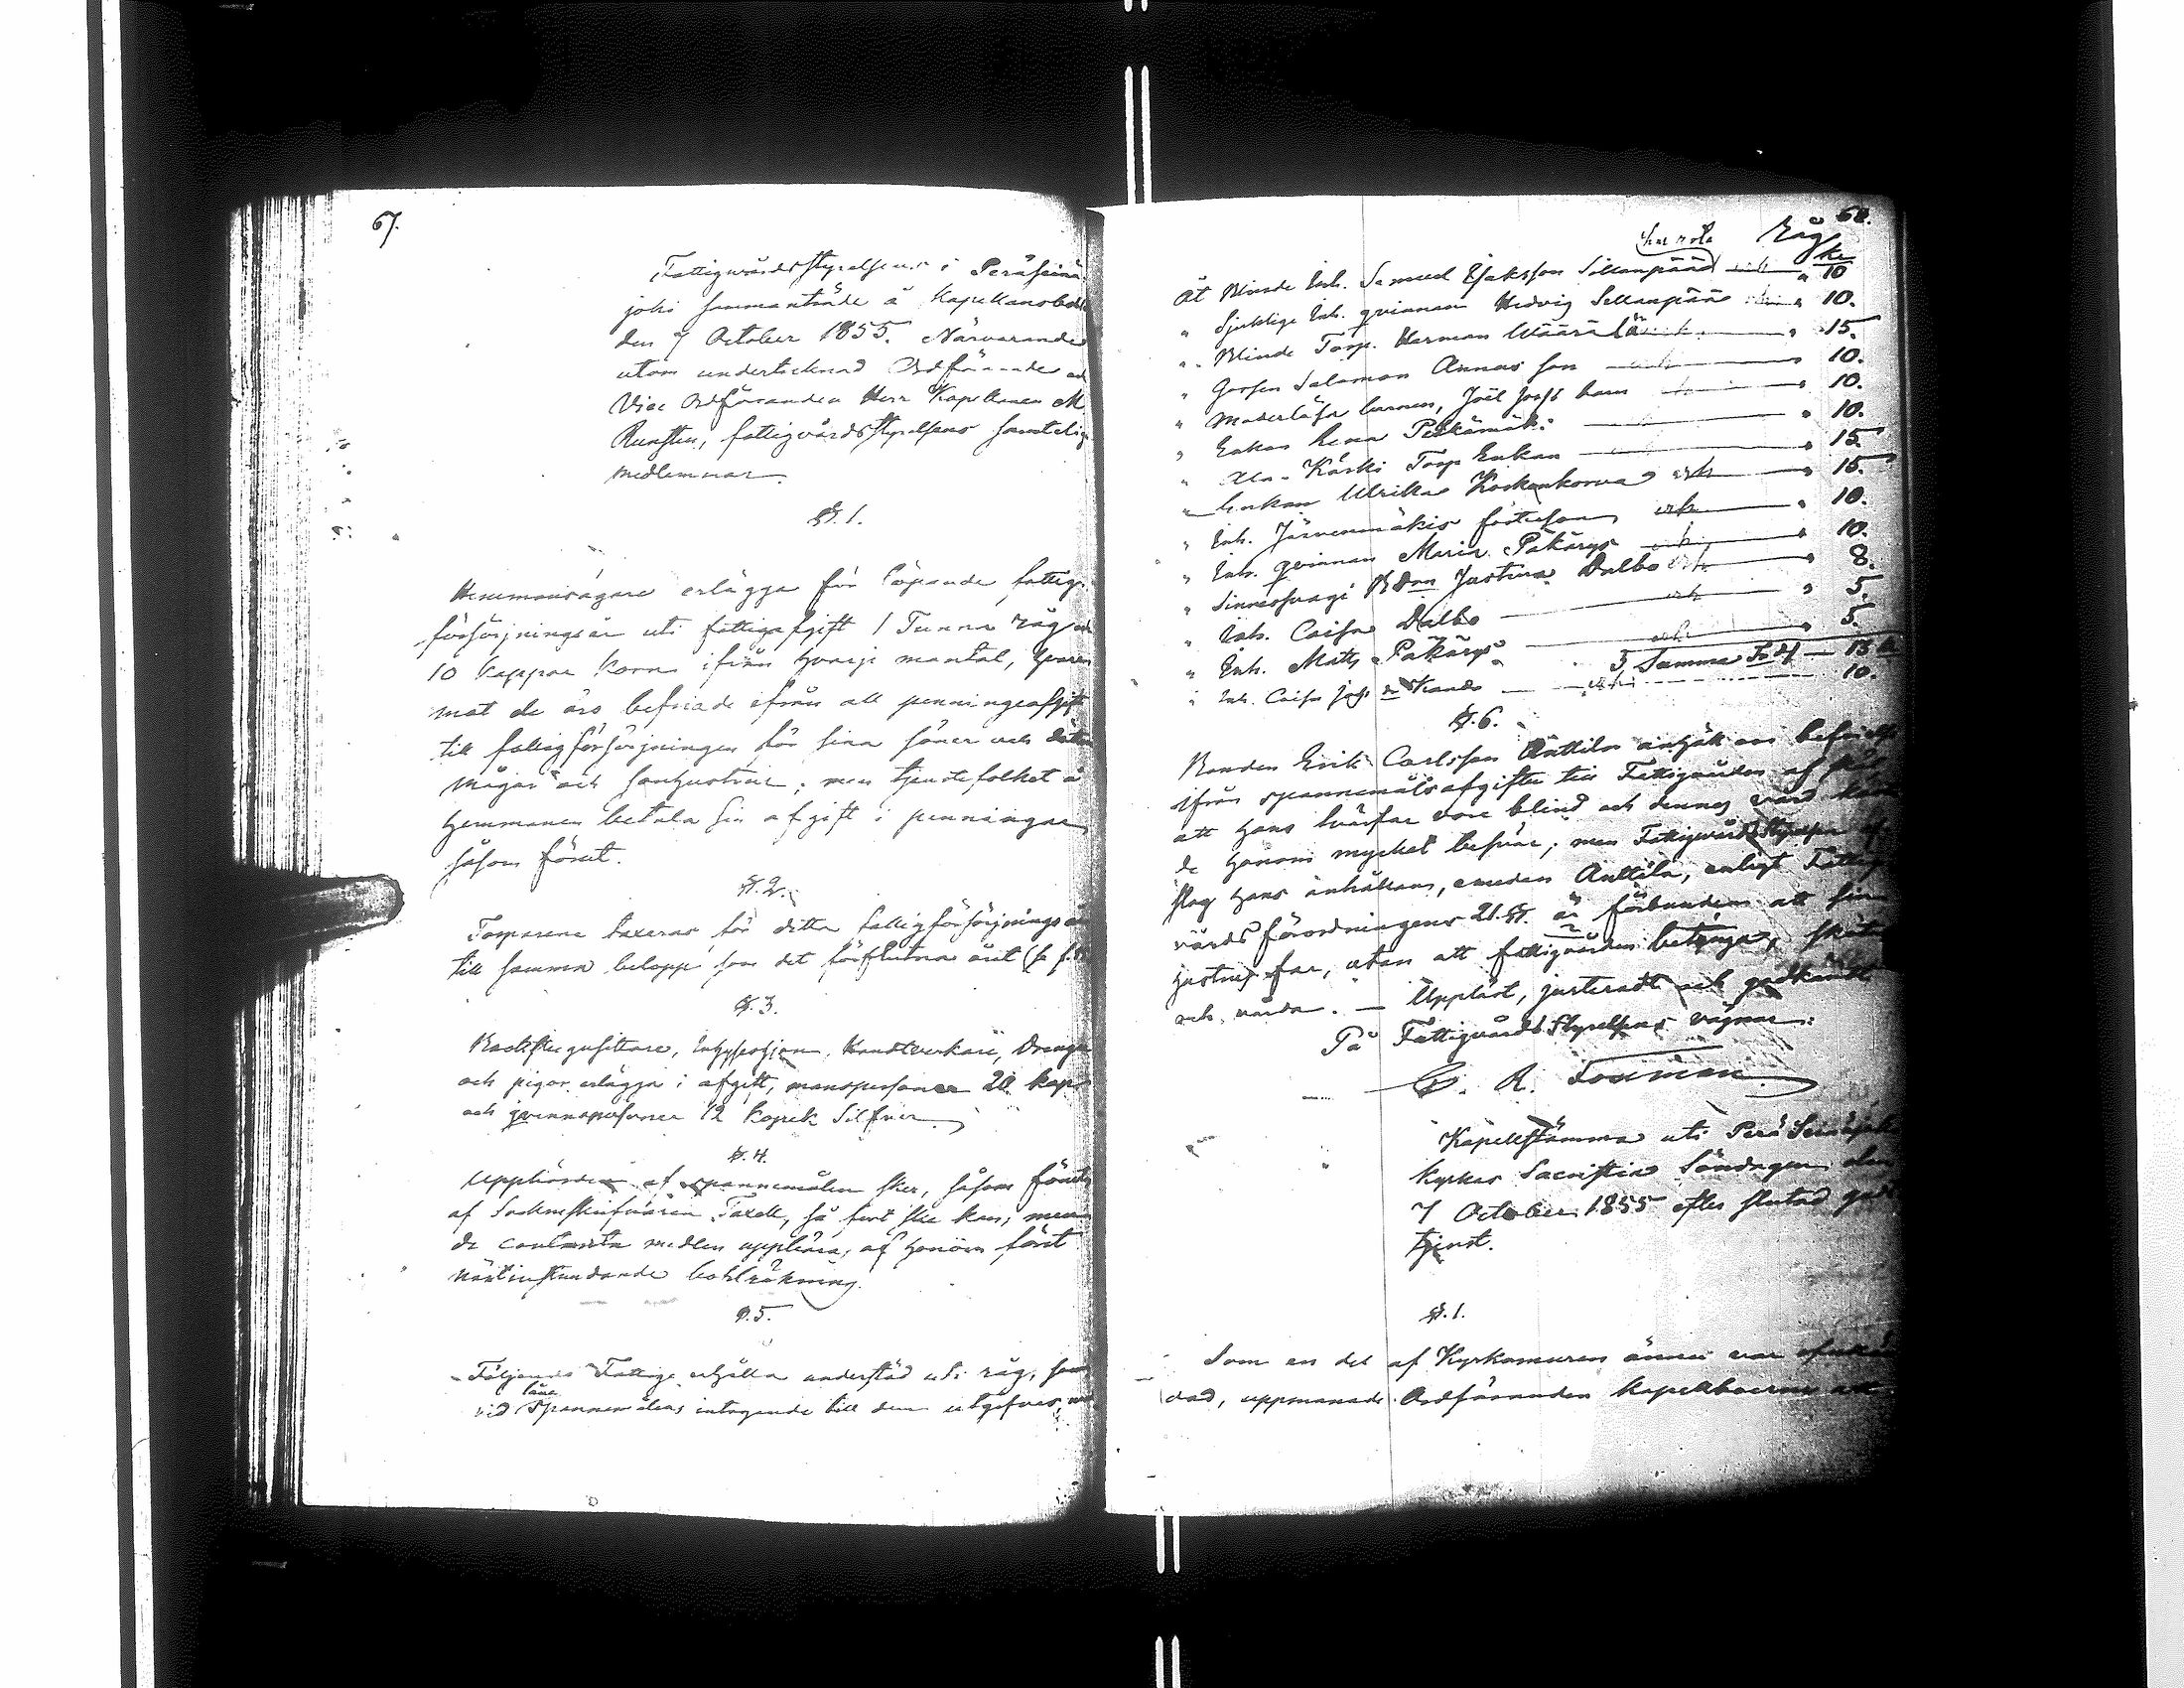 67.
Fattigvårdsstyrelsens i Peräseinä-
joki sammanträde å Kapellansbol
den 7 October 1855. Närvarande
utom undertecknad Ordförande och
Vice Ordföranden Herr Kapellanen M
, fattigvårdsstyrelsens samtelige
medlemmar.
§. 1.
Hemmansägare erlägga för löpande fattig-
försörjningsår uti fattigafgift 1 Tunna råg och
10 kappar Korn ifrån hvarje mantal, hvare
mot de äro befriade ifrån all penningeafgift
till fattigförsörjningen för sina söner och
mågar och sonhustrur; men tjenstefolket å
hemmanen betala sin afgift i penningar
såsom förut.
§. 2.
Torparene taxeras för detta fattigförsörjnings år
till samma belopp som det förflutna året (se f.
§. 3.
och pigor erlägga i afgift, manspersoner 20 kop.
och qvinnspersoner 12 kopek Silfver.
§. 4.
Uppbörden af spannemålen sker, såsom förut,
af Sockneskrifvaren Taxell, så fort ske kan; men
de contanta medlen uppbäras af honom förut
nästinstundande bohlräkning.
§. 5.
Följande Fattige erhålla understöd uti råg, som
låne
vid Spannemålens intagende till dem utgifves,
68.
Råg
kr
Åt Blinde Inh. Samuel Isaksson Sillanpää " 10
" Sjuklige Inh. qvinnan Hedvig Sillanpää " 10.
" Blinde Torp. Herman Määrälä " 15.
" Gossen Salomon Annas son " 10.
" Moderlösa barnen, Joël Josefs barn " 10.
" Enkan Lena Pitkämäki " 10.
" Ala-Käski Torp Enkan " 15.
" Enkan Ulrika Koskenkorva " 15.
" Inh. Järvenmäkis " 10.
" Inh. qvinnan Maria Päkärys " 10.
" Sinnessvagi Justina Dalbo " 8.
" Inh. Caisa Dalbo " 5.
" Inh. Matts Päkärys " 5.
Summa 13 k
" Inh. Caisa 10.
§. 6.
Bonden Erik Carlsson Anttila anhöll om befrielse
ifrån spannemålsafgifter till Fattigvården af skäl
att hans svärfar vore blind och dennes vård
de honom mycket besvär; men Fattigvårds Styrelsen af-
slog hans anhållan, emedan Anttila, enligt Fattig-
vårds förordningens 21. §. är förbunden att sin
hustrus far, utan att fattigvården betunga, sköta
och vårda. — Uppläst, justeradt och godkändt
På Fattigvårds Styrelsens vägnar:
R. Forsman
Kapellstämma uti Perä Seinäjoki
kyrkas Sacristia Söndagen den
7 October 1855 efter slutad guds-
tjenst.
§. 1.
Som en del af Kyrkomuren ännu var
dad, uppmanade Ordföranden kapellboerne att